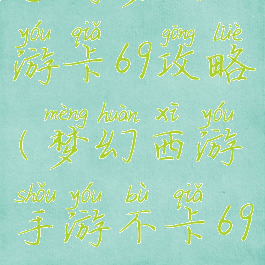 yóu qiǎ gōng lüè
游卡69攻略
mèng huàn xī yóu
(梦幻西游
shǒu yóu bù qiǎ
手游不卡69